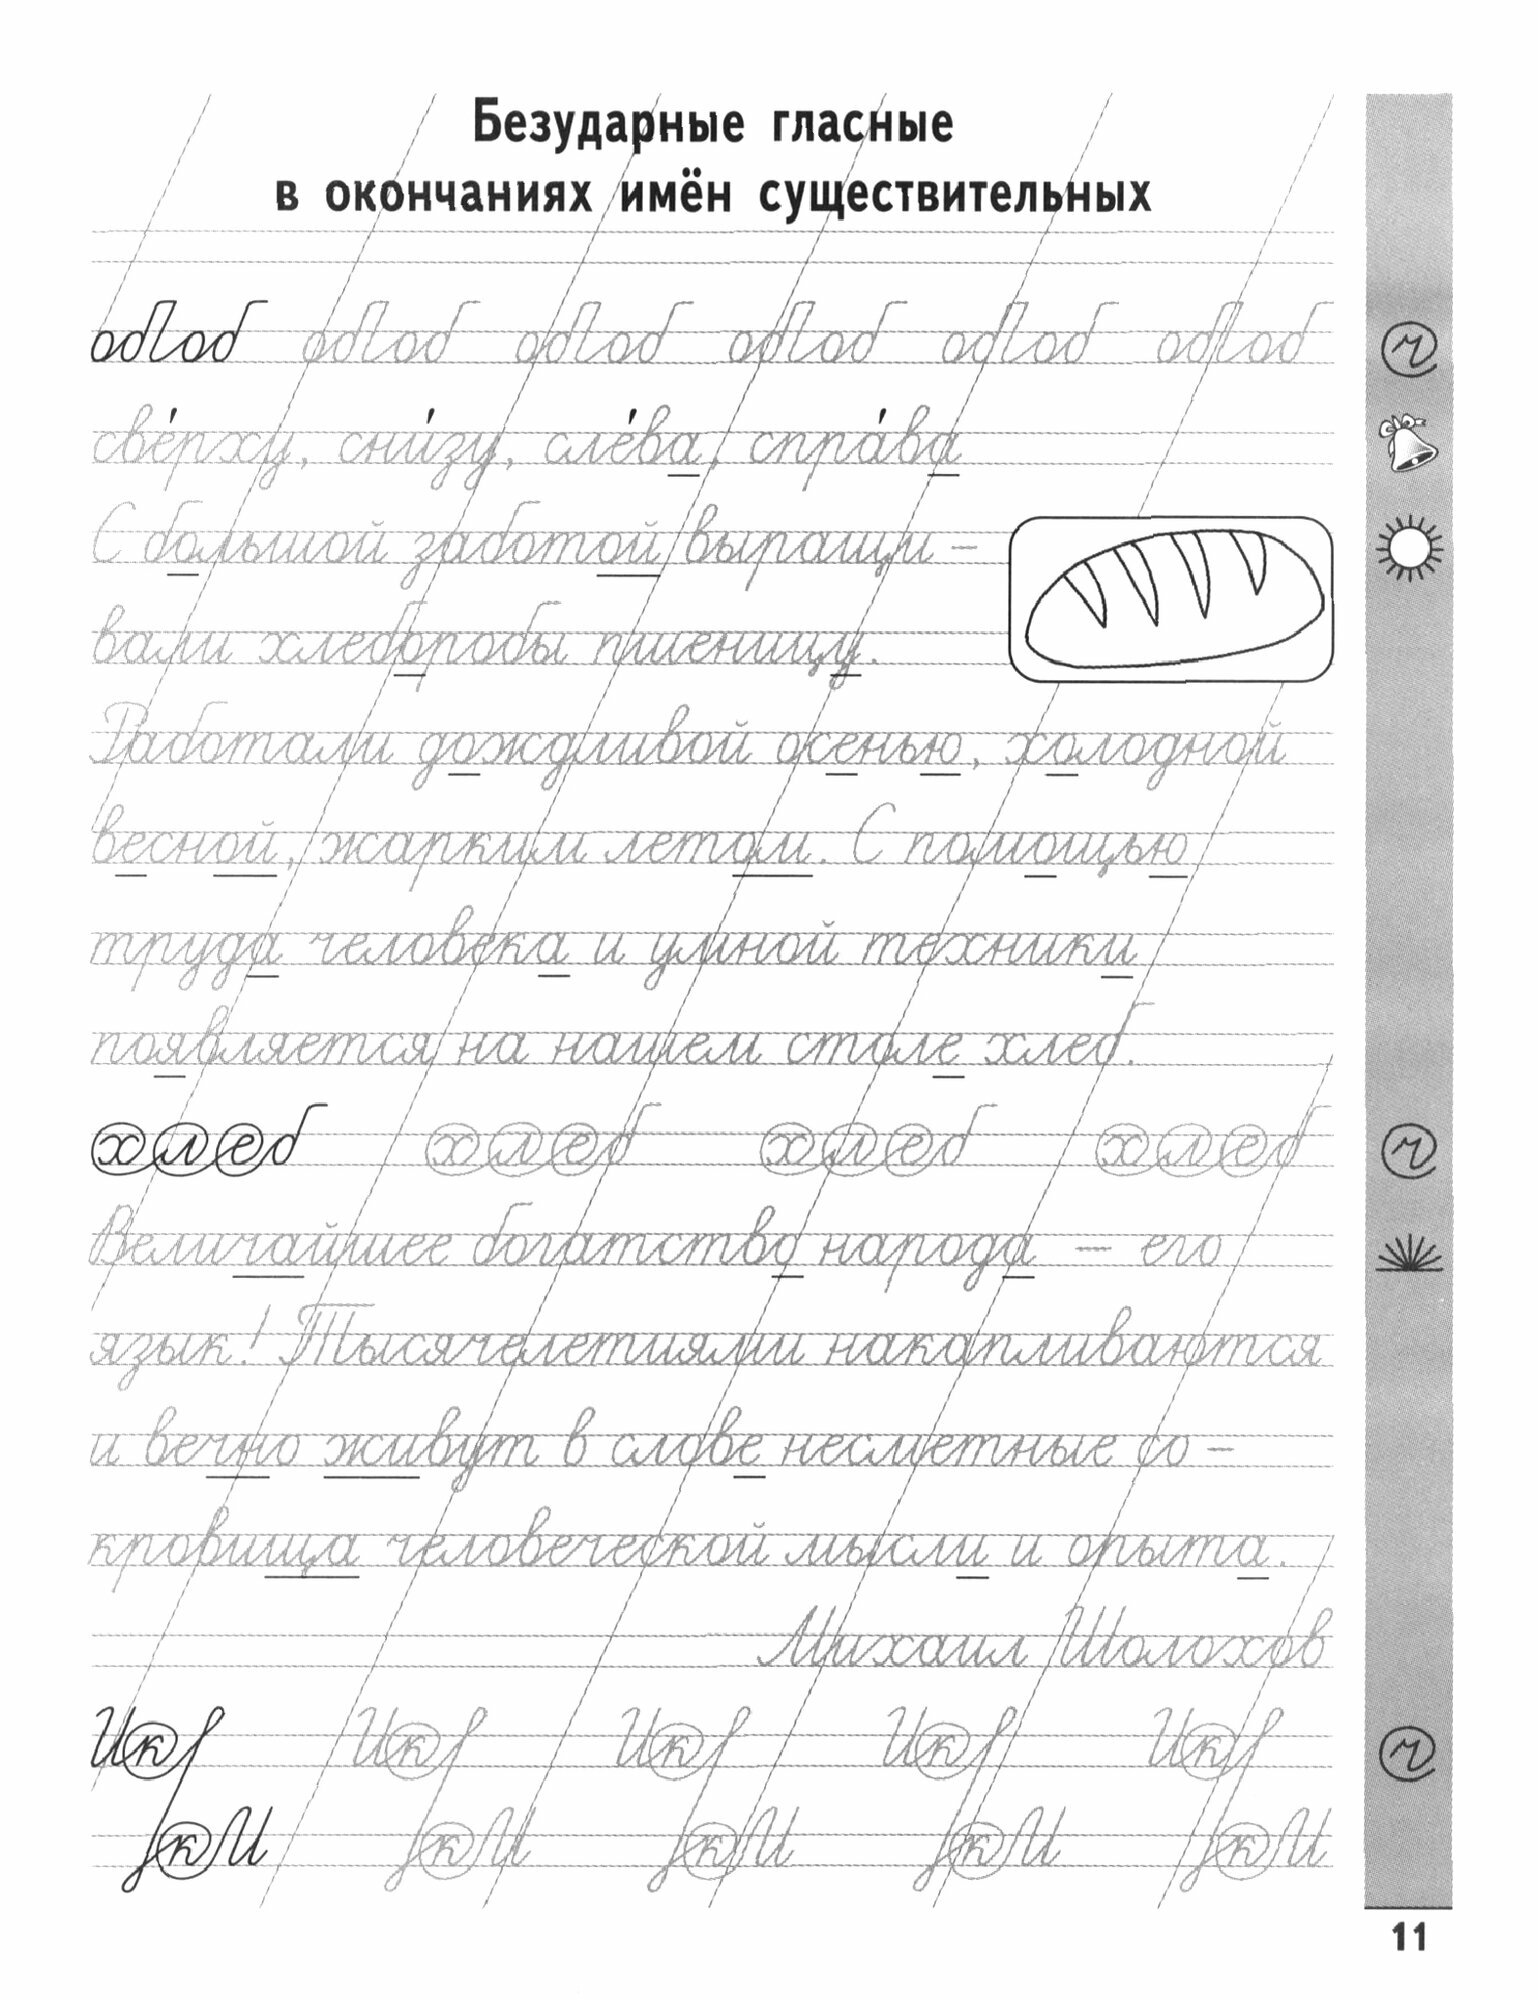 Безударные гласные
в окончаниях имён существительных
све́рху, сни́зу, сле́ва, спра́ва
С большой заботой выращи-
вали хлеборобы пшеницу.
Работали дождливой осенью, холодной
весной, жарким летом. С помощью
труда человека и умной техники
появляется на нашем столе хлеб.
хлеб хлеб хлеб хлеб
Величайшее богатство народа – его
язык! Тысячелетиями накапливаются
и вечно живут в слове несметные со-
кровища человеческой мысли и опыта.
Михаил Шолохов
11